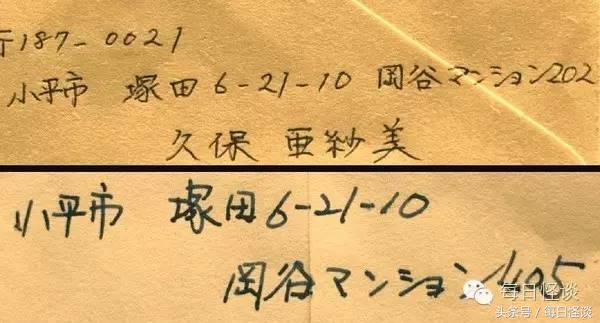 〒187-0021
小平市 塚田 6-21-10 岡谷マンション202
久保 亜紗美
小平市 塚田6-21-10
岡谷マンション405
每日怪谈
头条号 / 每日怪谈